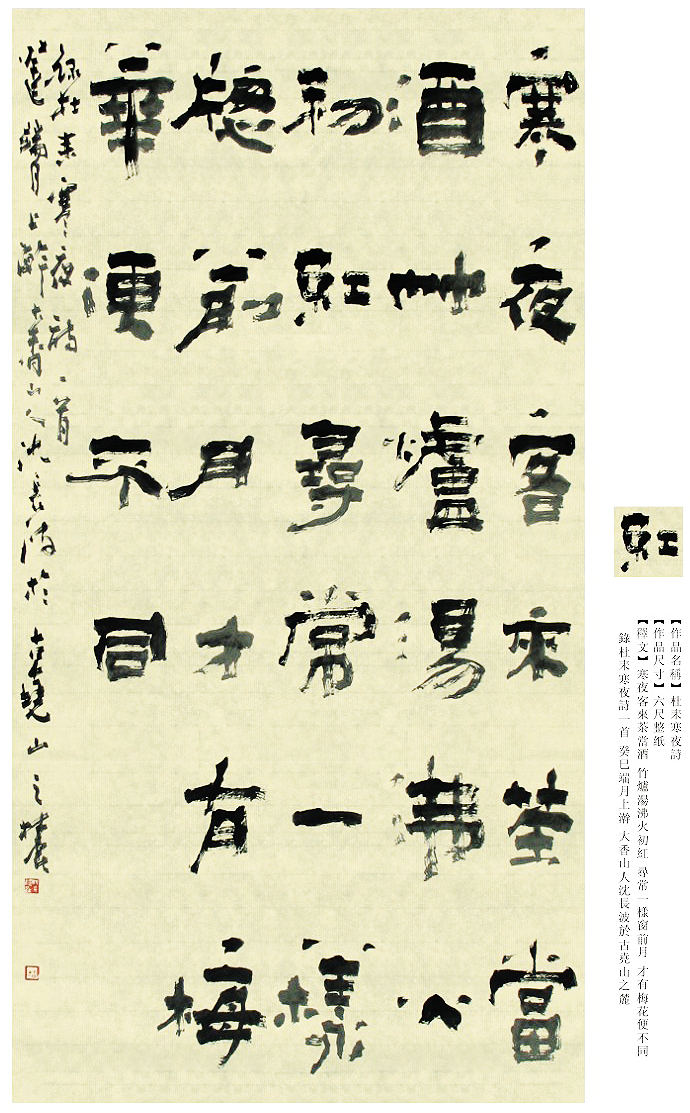 寒夜客來茶當
酒竹爐湯沸火
初紅尋常一樣
牕前月才有梅
華便不同
録杜耒寒夜詩一首
癸巳端月上澣大香山人沈長波於古堯山之麓
紅
【作品名稱】杜耒寒夜詩
【作品尺寸】六尺整纸
【釋文】寒夜客來茶當酒 竹爐湯沸火初紅 尋常一樣窗前月 才有梅花便不同
錄杜耒寒夜詩一首 癸巳端月上澣 大香山人沈長波於古堯山之麓